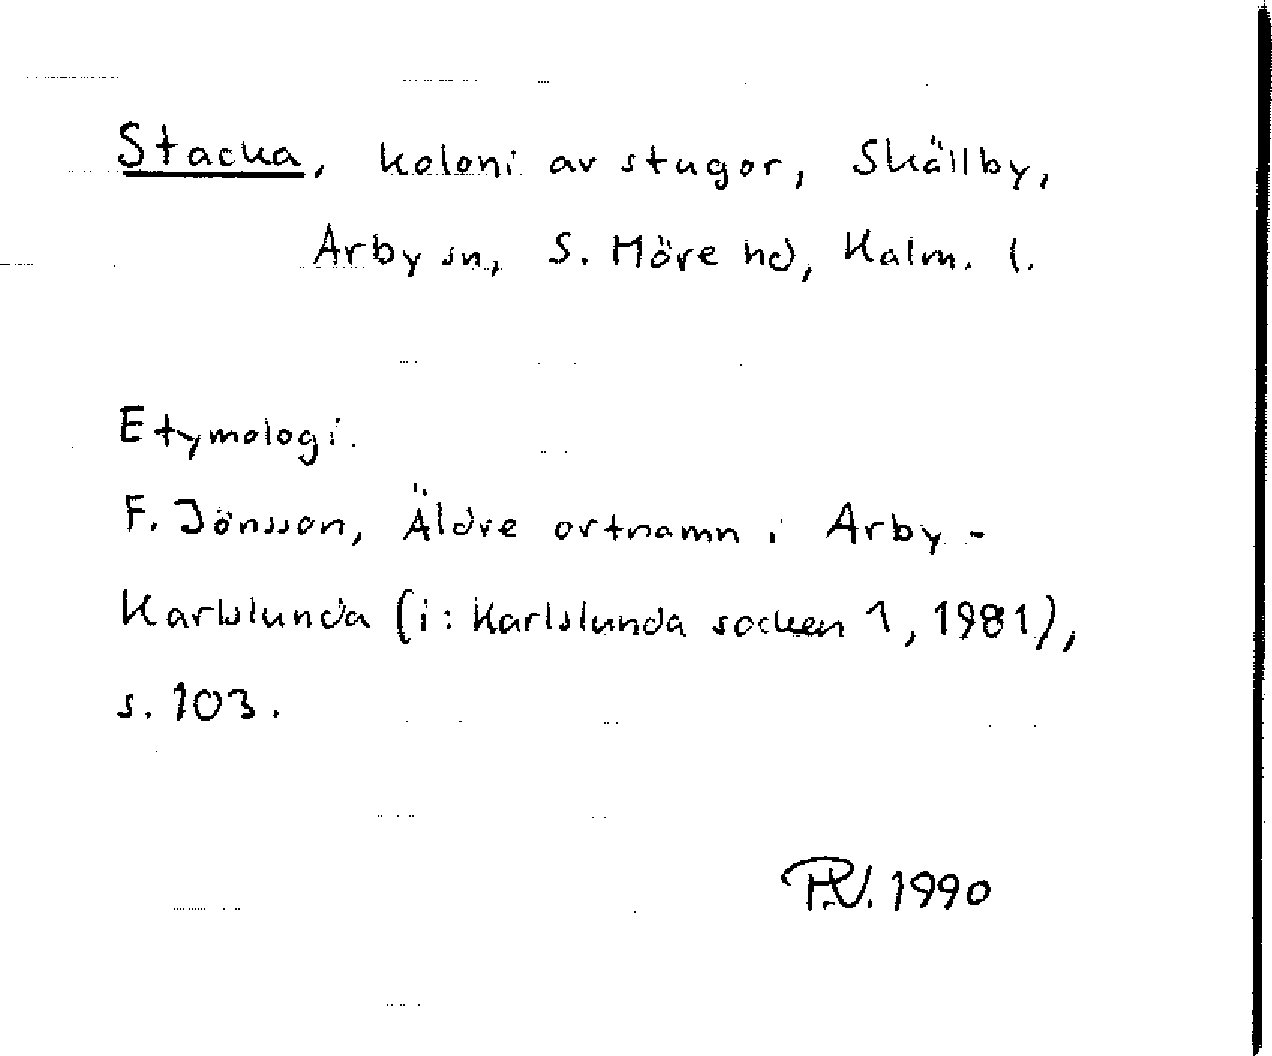 Stacka, koloni av stugor, Skällby,
Arby sn, S. Möre hd, Kalm. l.
Etymologi.
F. Jönsson, Äldre ortnamn i Arby-
Karlslunda (i: Karlslunda socken 1, 1981),
s. 103.
1990